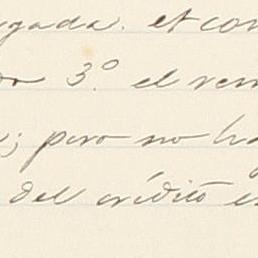 gada. et con
3.º el rem
; pero no ha
del crédito e